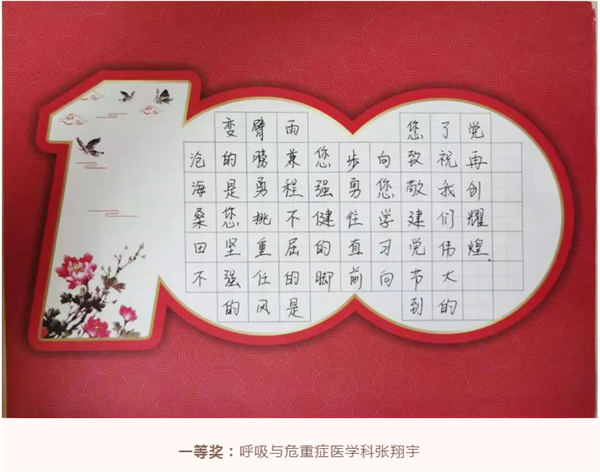 沧海桑田不
变的是您坚强的
臂膀勇挑重任风
雨兼程不屈的是
您强健的脚
步勇往直前
向您学习向
您致敬建党节到
了祝我们伟大的
党再创耀煌。
一等奖：呼吸与危重症医学科张翔宇